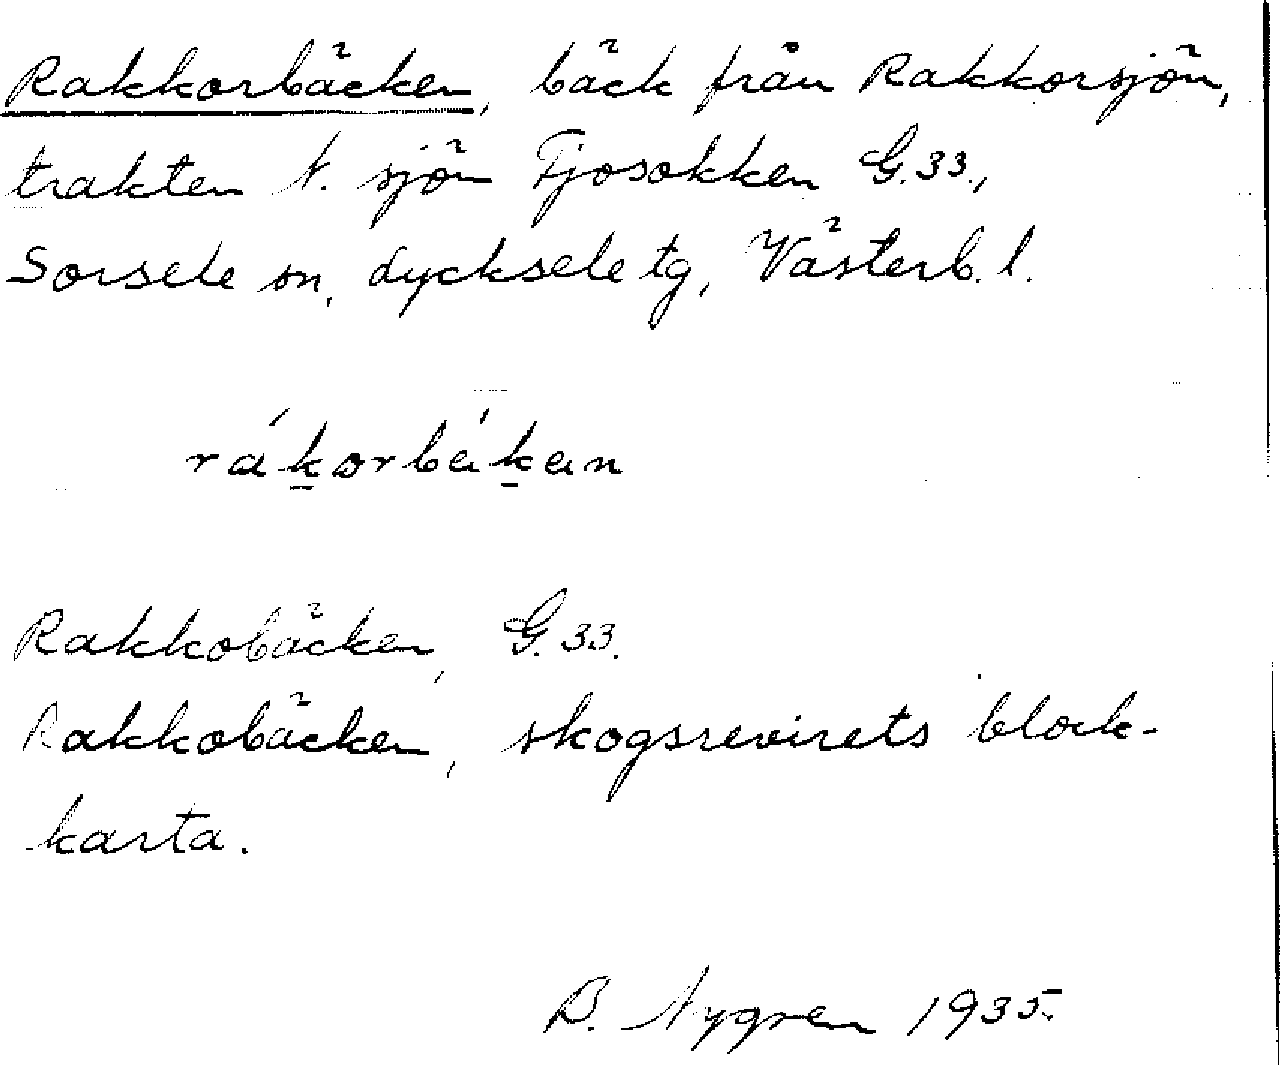 Rakkorbäcken, bäck från Rakkorsjön,
trakten N. sjön Tjosokken G.33.,
Sorsele sn, Lycksele tg, Västerb. l.
rákorbékan
Rakkobäcken, G.33.
Rakkobäcken, skogsrevirets block-
karta.
B. Nygren 1935.